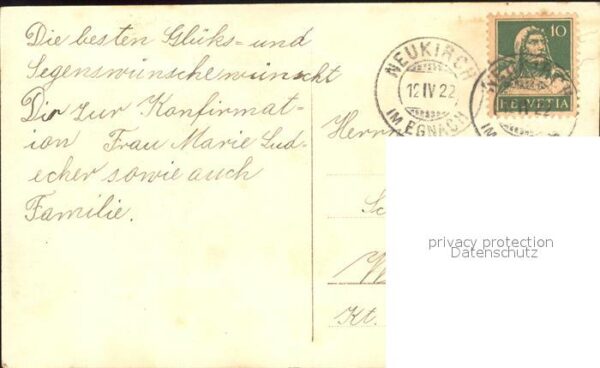 Die besten Glüks- und
Segenswünsche wünscht
Dir zur Konfirmat-
ion Frau Marie Lud-
echer sowie auch
Familie.
NEUKIRCH
12 IV 22
IM EGNACH
10
HELVETIA
IM EGNACH
Herrn
Kt.
privacy protection
Datenschutz